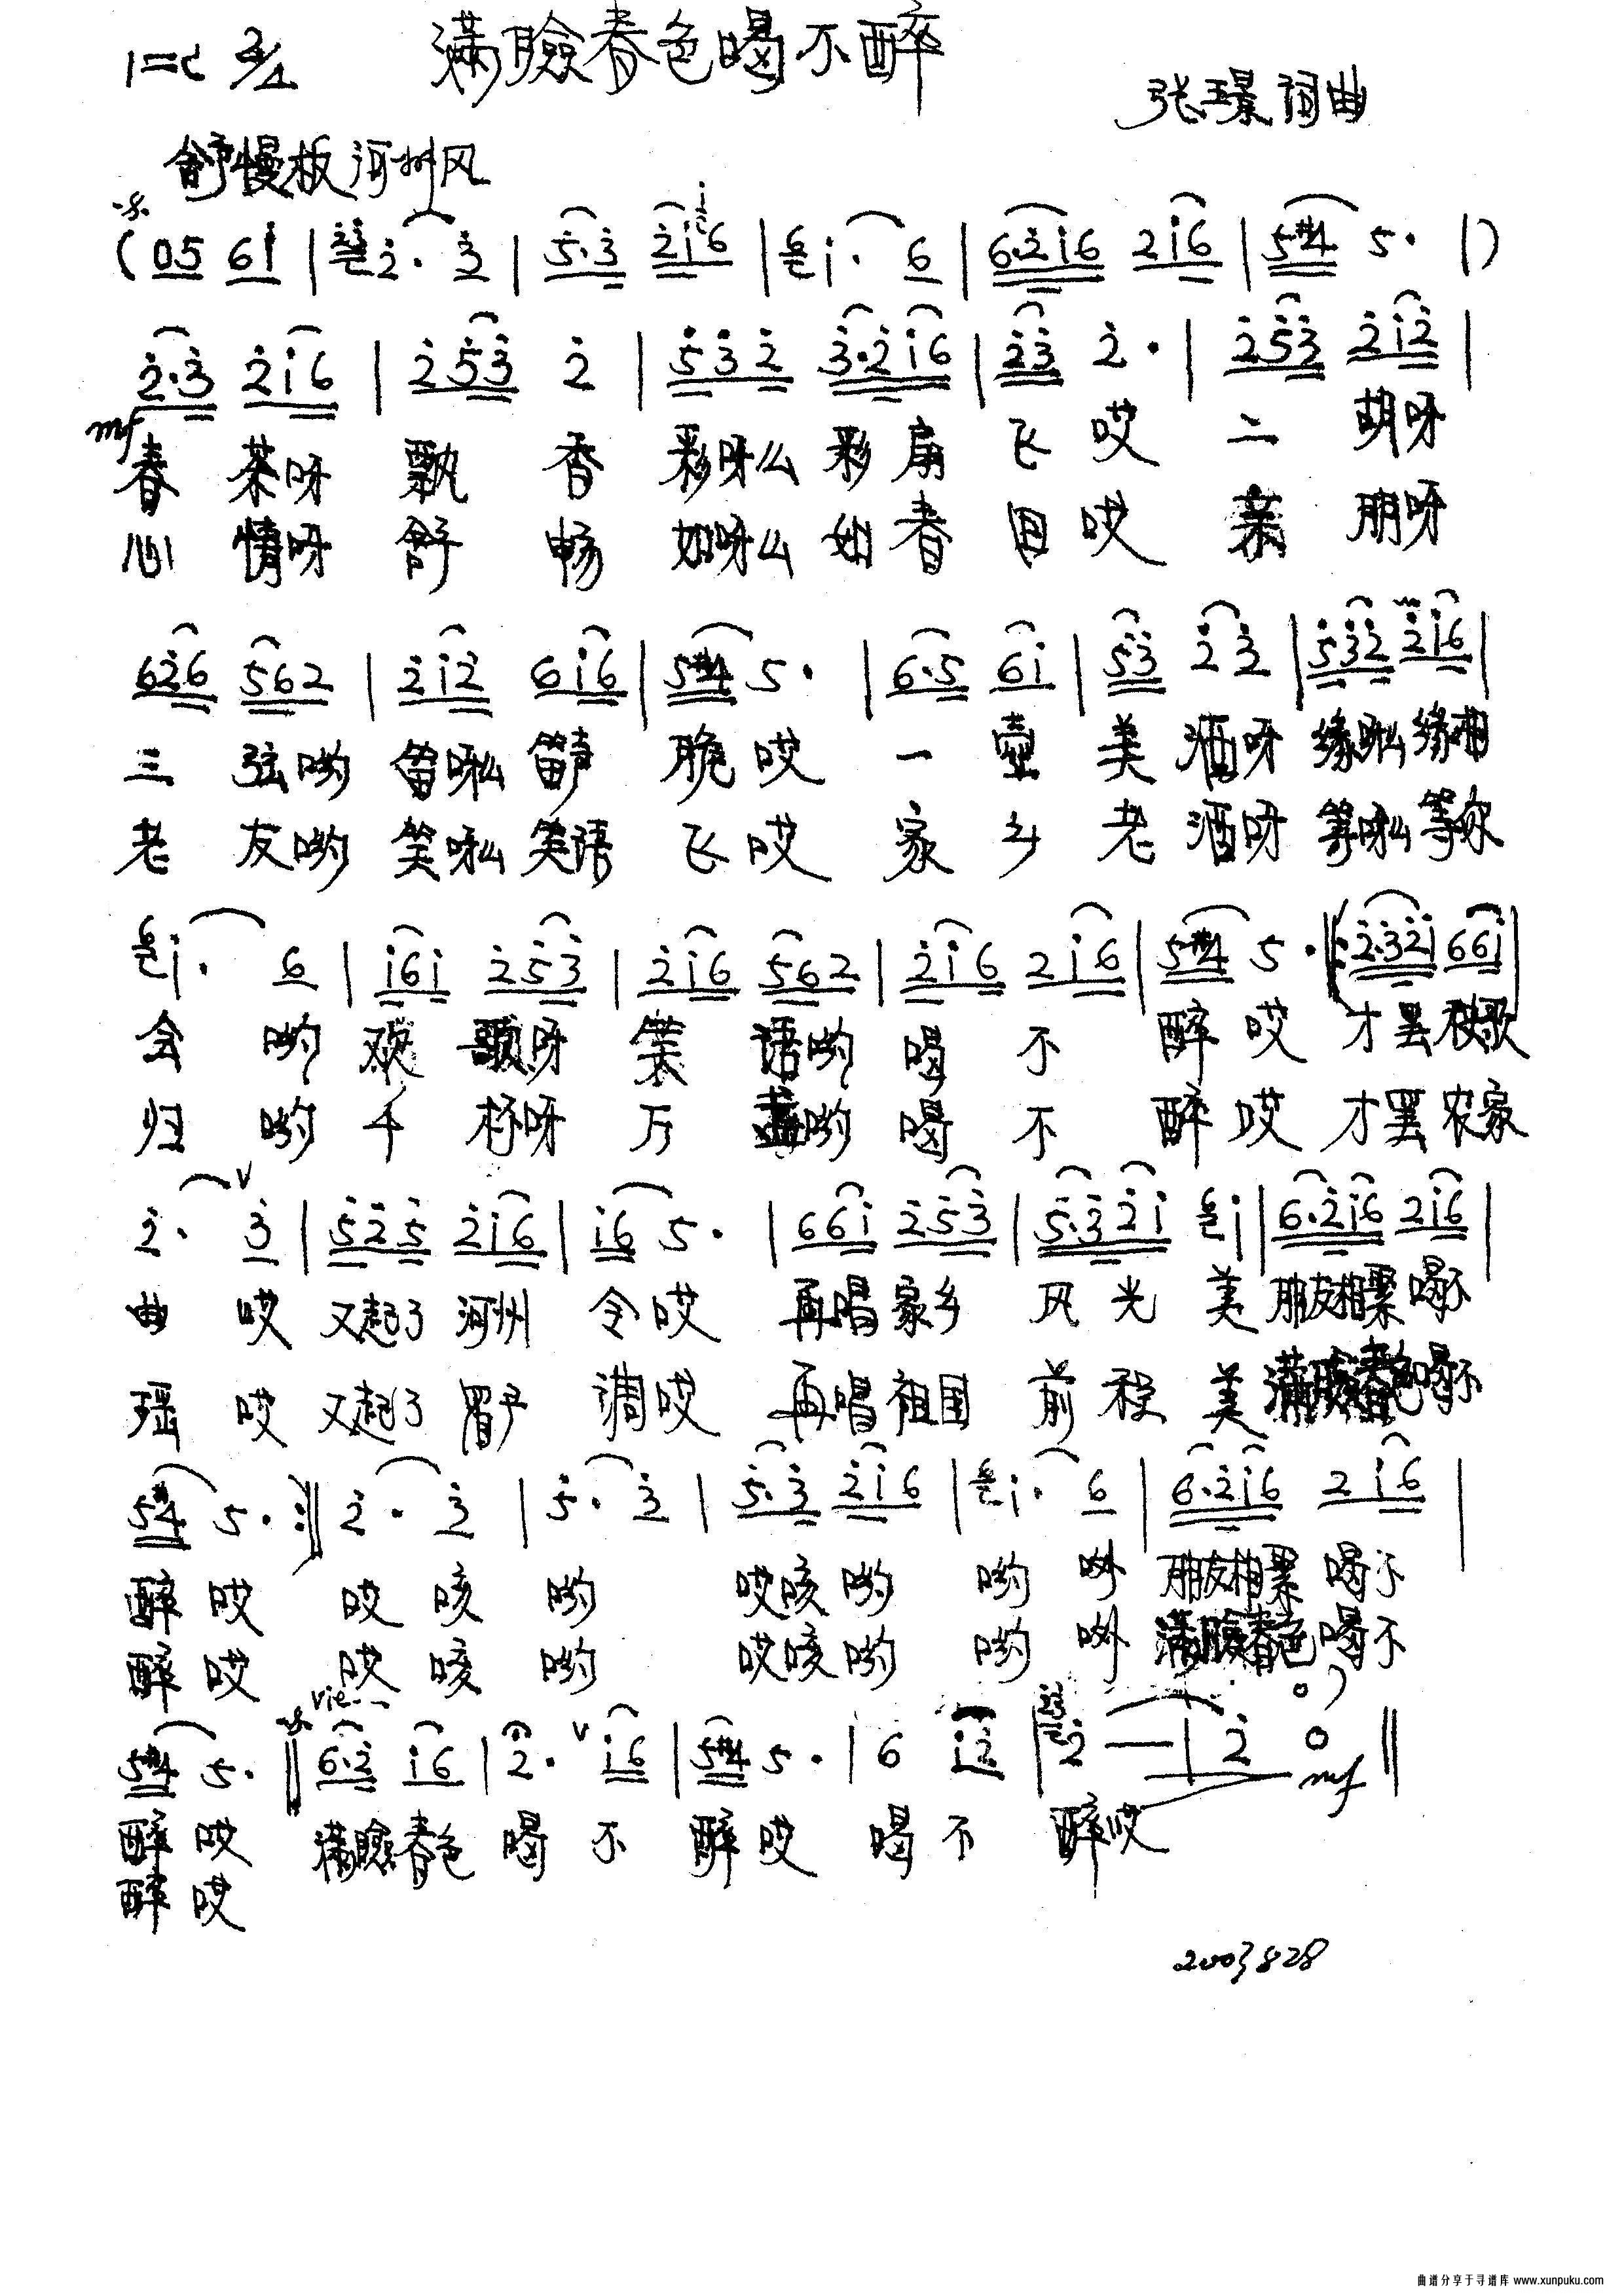 1=C 2/4 满脸春色喝不醉
张璟词曲
舒慢板 河州风
(05 6i | 2· 3 | 5·3 2i6 | i· 6 | 6·2i6 2i6 | 5#4 5· |)
2·3 2i6 | 253 2 | 532 3·2i6 | 23 2· | 253 2i2 |
mf
春 茶呀 飘 香 彩呀么 彩扇 飞 哎 二 胡呀
心 情呀 舒 畅 如呀么 如春 回 哎 亲 朋呀
626 562 | 2i2 6i6 | 5#4 5· | 6·5 6i | 53 23 | 532 2i6 |
三 弦哟 笛呀么 笛声 脆 哎 一 壶 美 酒呀 缘呀么 缘曲
老 友哟 笑呀么 笑语 飞 哎 家 乡 老 酒呀 等呀么 等你
i· 6 | i6i 253 | 2i6 562 | 2i6 2i6 | 5#4 5· |: 2·32i 66i |
会 哟 欢 歌呀 笑 语哟 喝 不 醉 哎 才罢秧歌
归 哟 千 杯呀 万 盏哟 喝 不 醉 哎 才罢农家
2· 3 | 525 2i6 | i6 5· | 66i 253 | 5·32i i | 6·2i6 2i6 |
曲 哎 又起了 河州 令哎 再唱家乡 风光 美 朋友相聚 喝不
瑶 哎 又起了 眉户 调哎 再唱祖国 前程 美 满脸春色喝不
5#4 5· :| 2· 3 | 5· 3 | 5·3 2i6 | i· 6 | 6·2i6 2i6 |
醉 哎 哎 咳 哟 哎咳 哟 哟 朋友相聚 喝不
醉 哎 哎 咳 哟 哎咳 哟 哟 满脸春色 喝不
5#4 5· || 6·2 i6 | 2· i6 | 5#4 5· | 6 i2 | 2 — | 2 0 ||
mf
醉 哎 满脸春色 喝 不 醉 哎 喝 不 醉哎
醉 哎
2003 8 28
曲谱分享于寻谱库 www.xunpuku.com